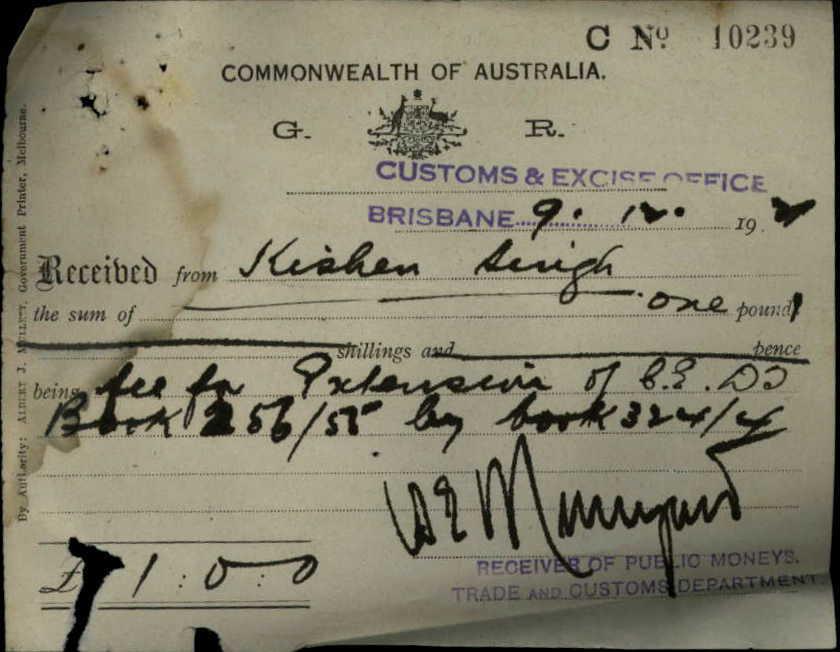 C Nº 10239
COMMONWEALTH OF AUSTRALIA.
G. R.
CUSTOMS & EXCISE OFFICE
BRISBANE 9. 12. 19
Received from Kishen Singh
the sum of one pound
shillings and pence
being fee for Extension of C.E.D.T
Book 256/55 by book 324/4
£ 1 : 0 : 0
RECEIVER OF PUBLIC MONEYS.
TRADE AND CUSTOMS DEPARTMENT.
By Authority: ALBERT J. MULLETT, Government Printer, Melbourne.